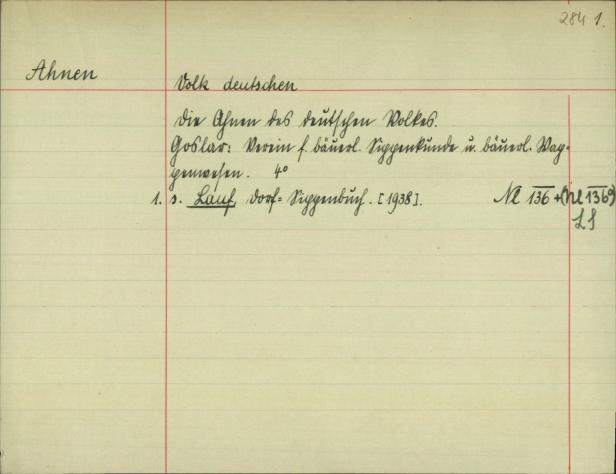 284 1.
Ahnen
Volk deutschen
Die Ahnen des deutschen Volkes.
Goslar: Verein f. bäuerl. Sippenkunde u. bäuerl. Wap-
penwesen. 4°
1. s. Lauf, Dorf-Sippenbuch. [1938]. Nl 136 + (Nl 1369)
LS